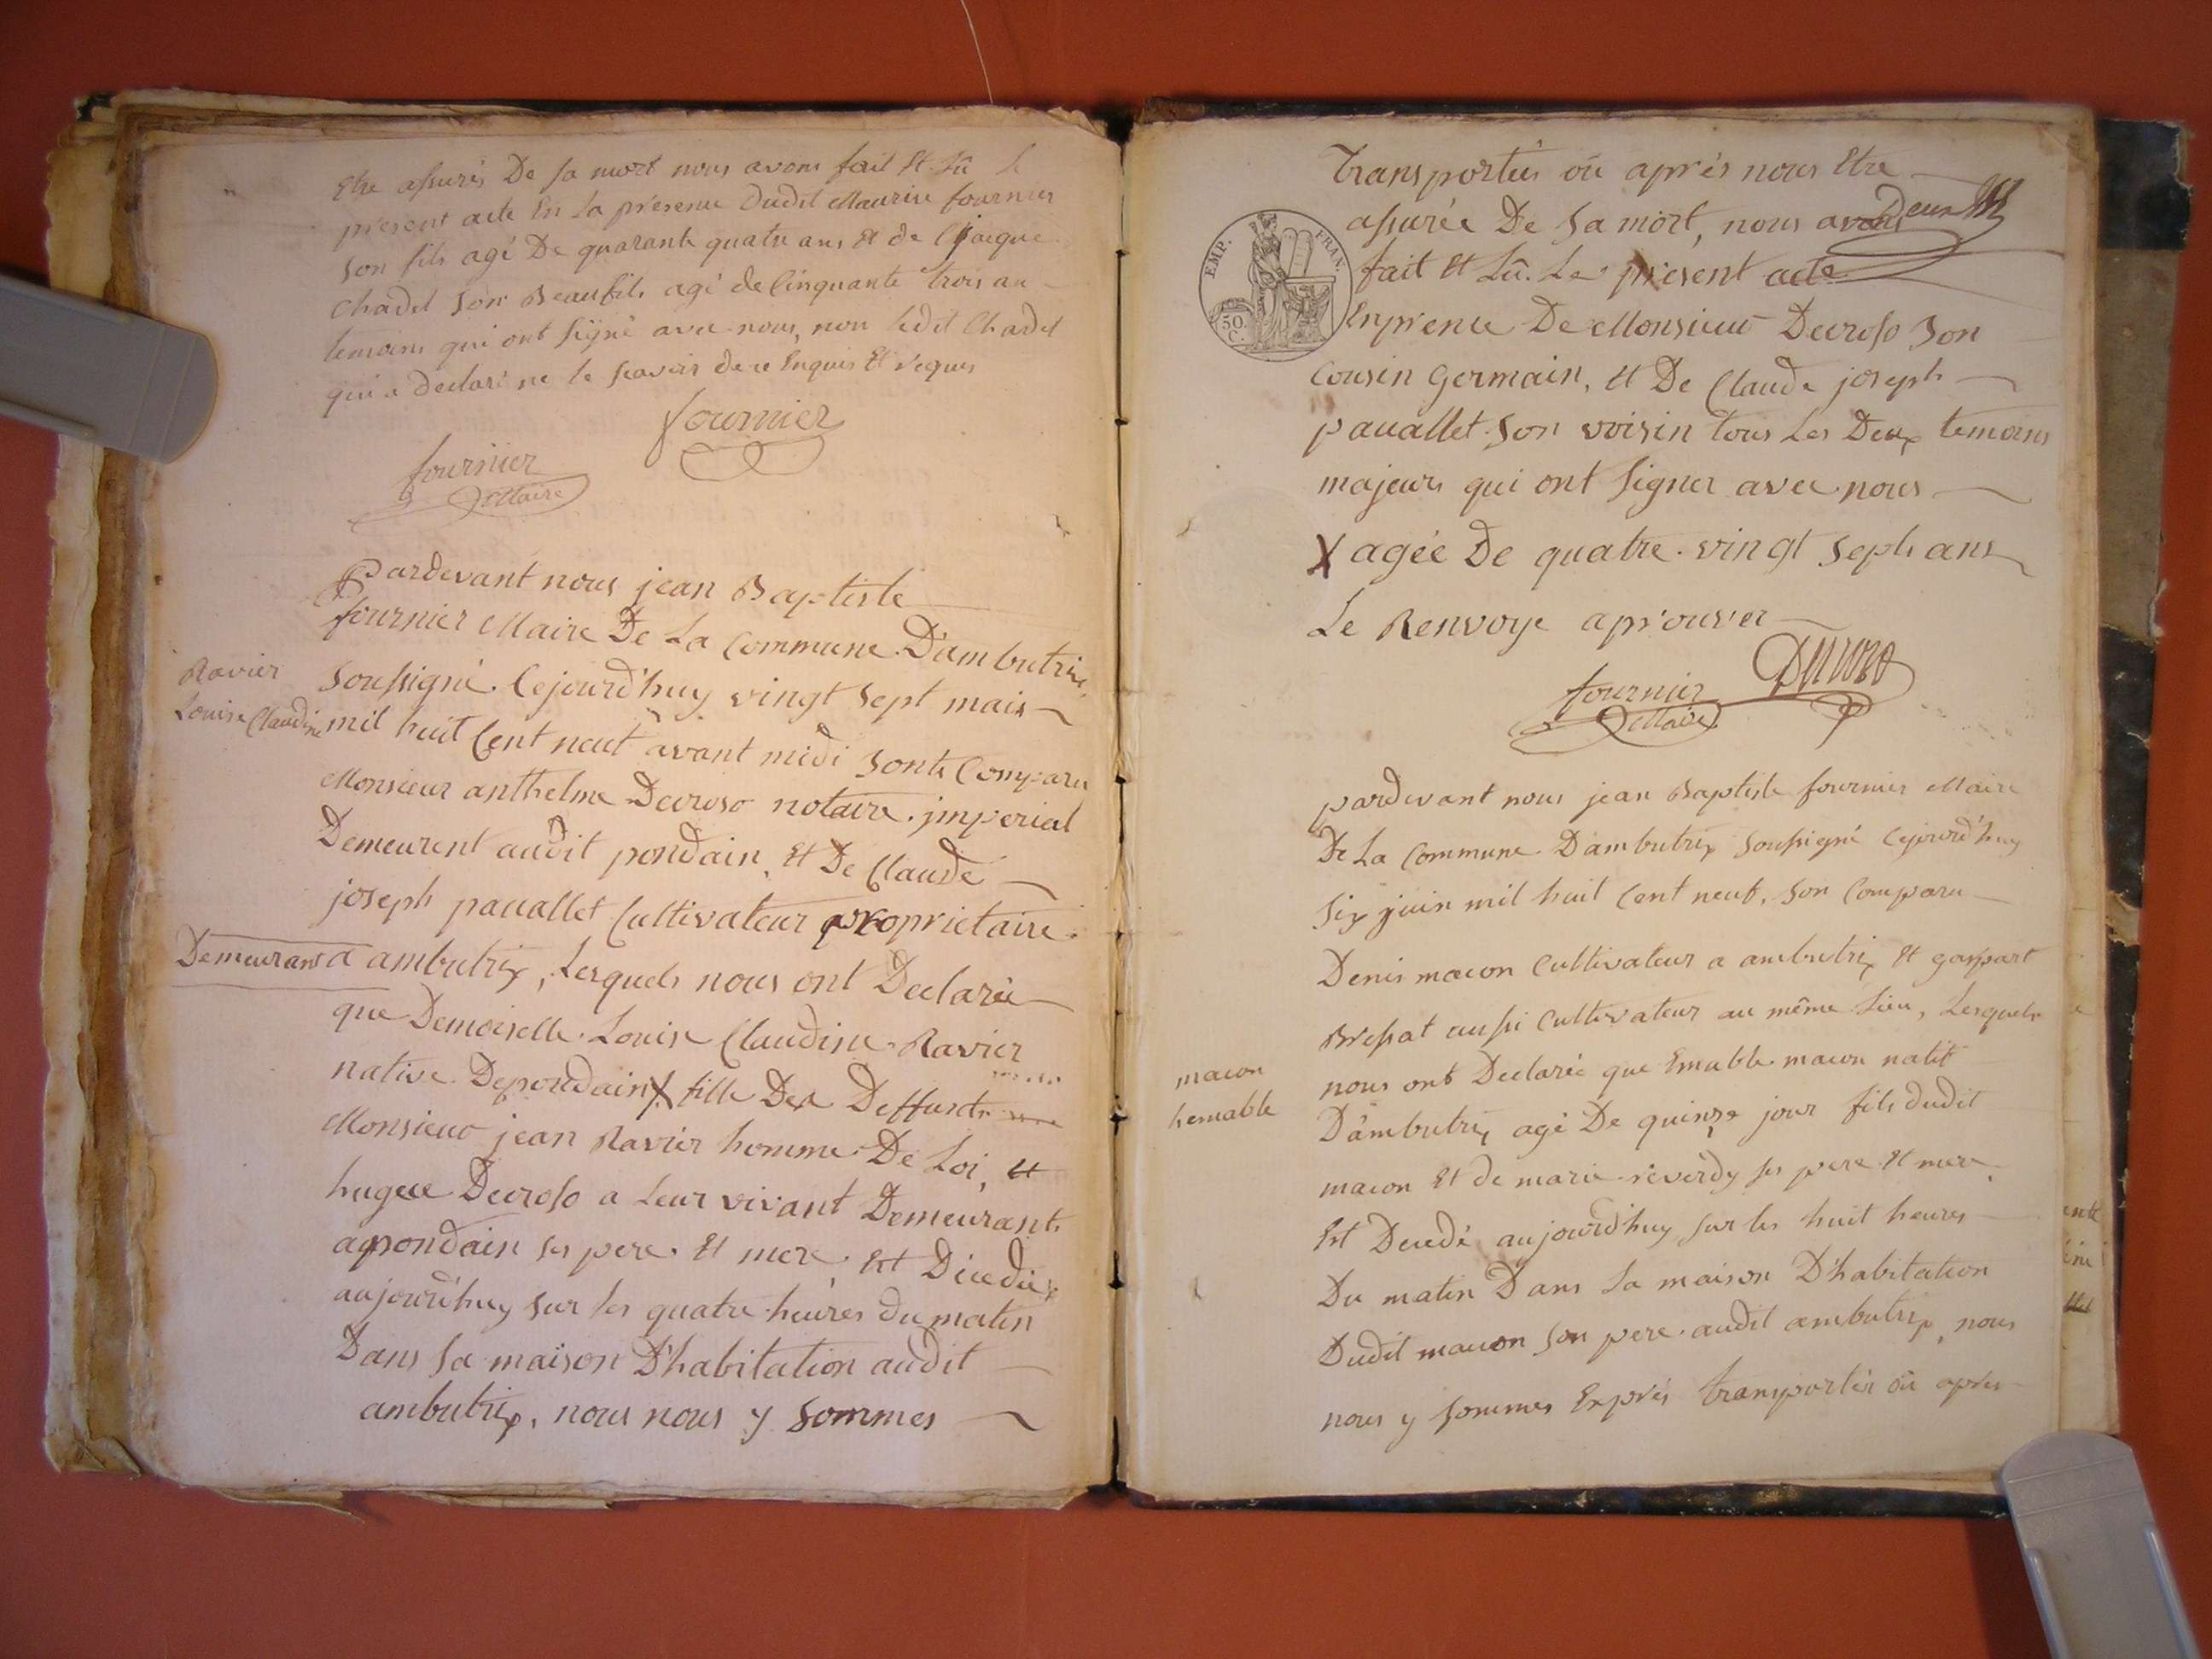 Etre assurés De sa mort nous avons fait Et Lû le
présent acte En La présence dudit Maurise fournier
son fils agé De quarante quatre ans Et de Cjacque
Chadel son Beaufils agé de Cinquante trois an
temoins qui ont signé avec nous, non ledit Chadel
qui a declaré ne le scavoir de ce Enquis Et requis
fournier
fournier
Maire
Pardevant nous jean Baptiste
fournier Maire De La Commune D'ambutrix
Ravier
Louise Claudine
soussigné Cejourd'huy vingt sept mais
mil huit Cent neuf avant midi sonts Comparu
Monsieur anthelme Decroso notaire jmperial
Demeurent audit pondain, Et De Claude
joseph pauallet Cultivateur proprietaire
Demeurant a ambutrix, Lesquels nous ont Declarée
que Demoiselle Louise Claudine Ravier
native Depondain X fille Des Deffunts
Monsieur jean Ravier homme De Loi, et
hugue Decroso a Leur vivant Demeurants
apondain ses pere Et mere, Est Dicedée
aujourd'huy sur les quatre heures du matin
Dans sa maison D'habitation audit
ambutrix, nous nous y sommes
Deux
Transportées oû aprés nous Etre
assurée De Sa mort, nous avons
EMP. FRAN.
50.
C.
fait Et Lû. Le present acte
Enprence De Monsieur Decroso son
Cousin Germain, Et De Claude joseph
pauallet son voisin tous Les Deux temoins
majeurs qui ont signer avec nous
X agée De quatre vingt septs ans
Le Renvoye aprouver
Decroso
fournier
Maire
pardevant nous jean Baptiste fournier Maire
De La Commune D'ambutrix soussigné Cejourd'huy
six juin mil huit Cent neuf, son Comparu
Denis macon Cultivateur a ambutrix Et gaspart
Bressat aussi Cultivateur au même Lieu, Lesquels
macon
hemable
nous ont Declarée que Emable macon natif
D'ambutrix agé De quinze jour fils dudit
macon Et de marie reverdy ses pere Et mere
Est Decedé aujourd'huy sur les huit heures
Du matin Dans La maison D'habitation
Dudit macon son pere audit ambutrix, nous
nous y sommes Exprés transportés oû apres